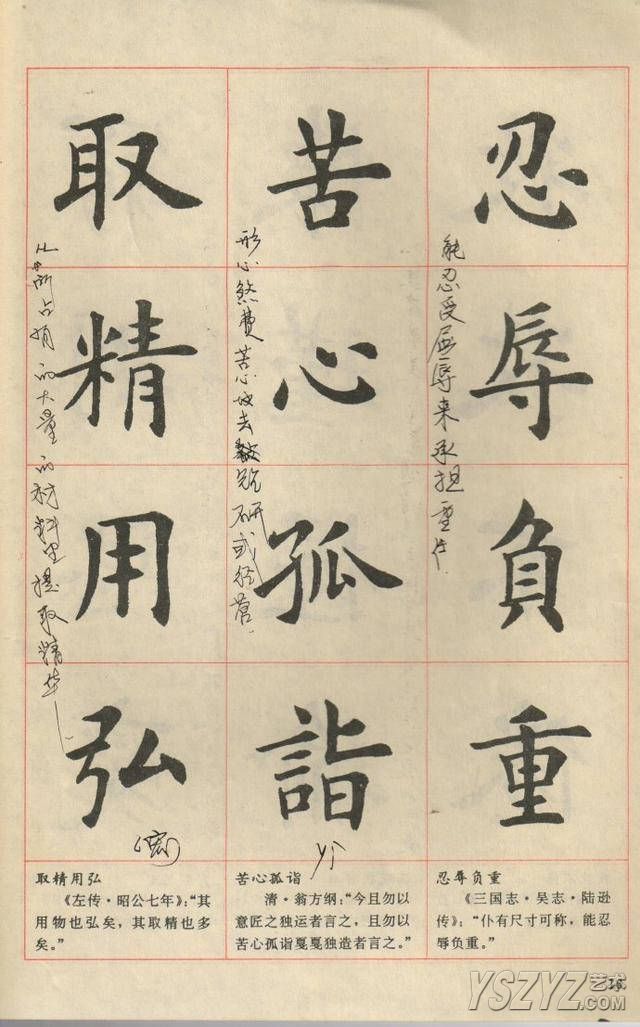 忍辱负重
能忍受屈辱来承担重任.
苦心孤詣
形心煞费苦心
研或经营.
取精用弘
的大量的材料里提取精华
(宏)
yì
取精用弘
《左传·昭公七年》:“其
用物也弘矣,其取精也多
矣。”
苦心孤诣
清·翁方纲:“今且勿以
意匠之独运者言之,且勿以
苦心孤诣戛戛独造者言之。”
忍辱负重
《三国志·吴志·陆逊
传》:“仆有尺寸可称,能忍
辱负重。”
YSZYZ艺术
.COM